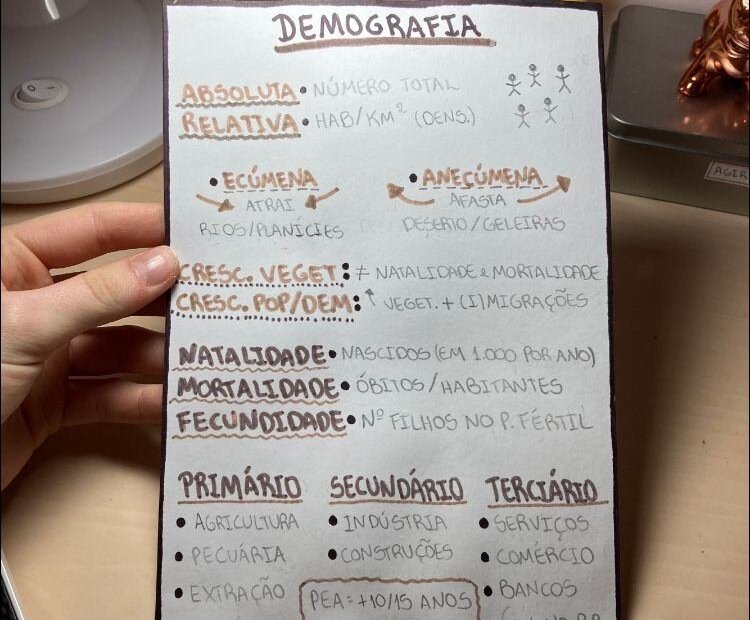 DEMOGRAFIA
ABSOLUTA • NÚMERO TOTAL
RELATIVA • HAB/KM² (DENS.)
• ECÚMENA
ATRAI
RIOS/PLANÍCIES
• ANECÚMENA
AFASTA
DESERTO/GELEIRAS
CRESC. VEGET: ≠ NATALIDADE e MORTALIDADE
CRESC. POP/DEM: ↑ VEGET. + (I)MIGRAÇÕES
NATALIDADE • NASCIDOS (EM 1.000 POR ANO)
MORTALIDADE • ÓBITOS/HABITANTES
FECUNDIDADE • Nº FILHOS NO P. FÉRTIL
PRIMÁRIO
• AGRICULTURA
• PECUÁRIA
• EXTRAÇÃO
SECUNDÁRIO
• INDÚSTRIA
• CONSTRUÇÕES
PEA = +10/15 ANOS
TERCIÁRIO
• SERVIÇOS
• COMÉRCIO
• BANCOS
AGIR